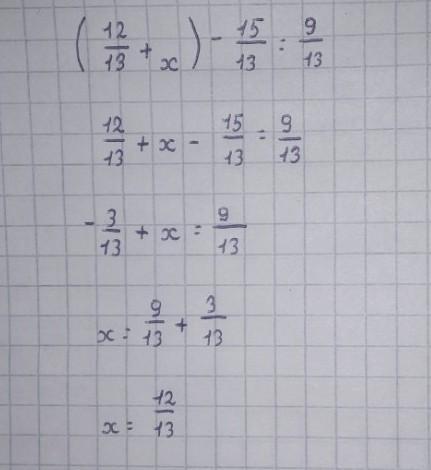 (12/13 + x) - 15/13 = 9/13
12/13 + x - 15/13 = 9/13
- 3/13 + x = 9/13
x = 9/13 + 3/13
x = 12/13